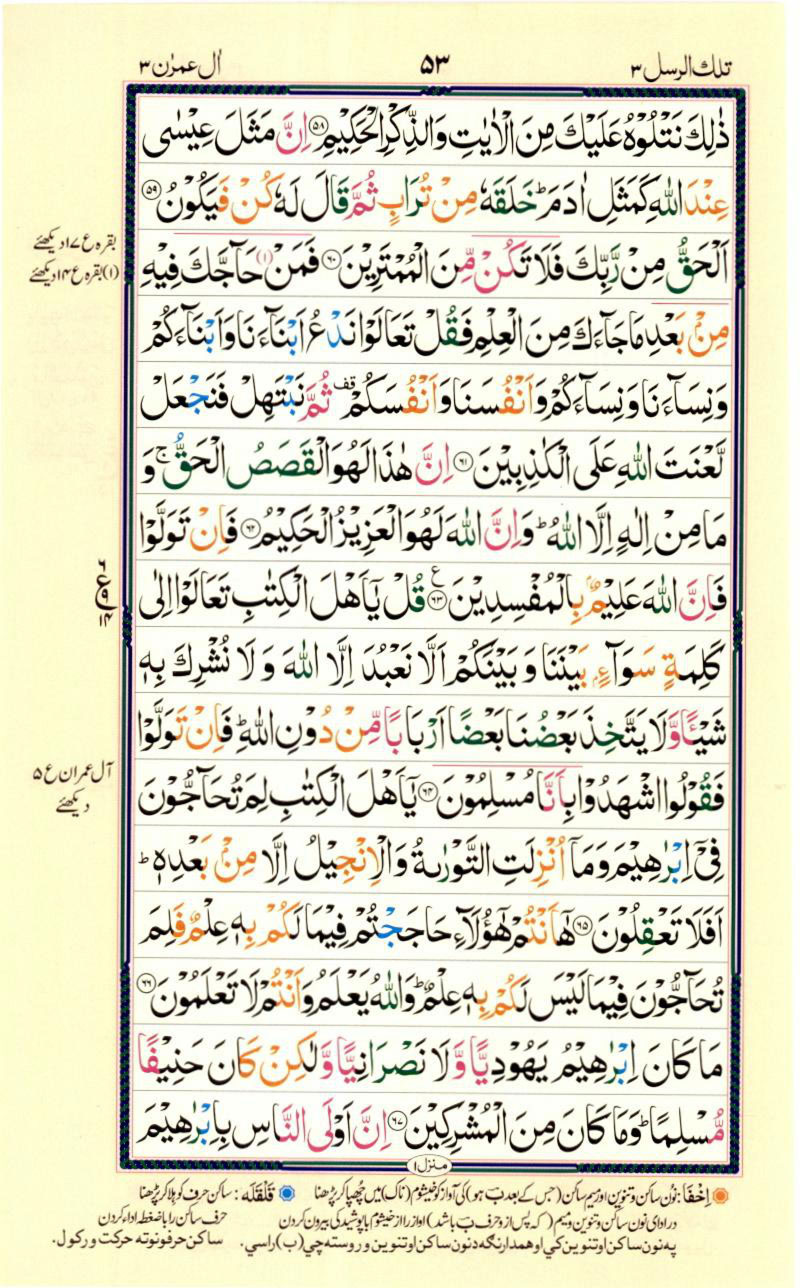 تلك الرسل ٣ ٥٣ اٰل عمرٰن ٣
ذٰلِكَ نَتْلُوْهُ عَلَيْكَ مِنَ الْاٰيٰتِ وَالذِّكْرِ الْحَكِيْمِ ﴿۵۸﴾ اِنَّ مَثَلَ عِيْسٰى
عِنْدَ اللّٰهِ كَمَثَلِ اٰدَمَ ؕ خَلَقَهٗ مِنْ تُرَابٍ ثُمَّ قَالَ لَهٗ كُنْ فَيَكُوْنُ ﴿۵۹﴾
اَلْحَقُّ مِنْ رَّبِّكَ فَلَا تَكُنْ مِّنَ الْمُمْتَرِيْنَ ﴿۶۰﴾ فَمَنْ (۱) حَآجَّكَ فِيْهِ
مِنْۢ بَعْدِ مَا جَآءَكَ مِنَ الْعِلْمِ فَقُلْ تَعَالَوْا نَدْعُ اَبْنَآءَنَا وَاَبْنَآءَكُمْ
وَنِسَآءَنَا وَنِسَآءَكُمْ وَاَنْفُسَنَا وَاَنْفُسَكُمْ قف ثُمَّ نَبْتَهِلْ فَنَجْعَلْ
لَّعْنَتَ اللّٰهِ عَلَى الْكٰذِبِيْنَ ﴿۶۱﴾ اِنَّ هٰذَا لَهُوَ الْقَصَصُ الْحَقُّ ۚ وَ
مَا مِنْ اِلٰهٍ اِلَّا اللّٰهُ ؕ وَاِنَّ اللّٰهَ لَهُوَ الْعَزِيْزُ الْحَكِيْمُ ﴿۶۲﴾ فَاِنْ تَوَلَّوْا
فَاِنَّ اللّٰهَ عَلِيْمٌۢ بِالْمُفْسِدِيْنَ ﴿۶۳﴾ ع قُلْ يٰۤاَهْلَ الْكِتٰبِ تَعَالَوْا اِلٰى
كَلِمَةٍ سَوَآءٍۭ بَيْنَنَا وَ بَيْنَكُمْ اَلَّا نَعْبُدَ اِلَّا اللّٰهَ وَ لَا نُشْرِكَ بِهٖ
شَيْـًٔا وَّلَا يَتَّخِذَ بَعْضُنَا بَعْضًا اَرْبَابًا مِّنْ دُوْنِ اللّٰهِ ؕ فَاِنْ تَوَلَّوْا
فَقُوْلُوا اشْهَدُوْا بِاَنَّا مُسْلِمُوْنَ ﴿۶۴﴾ يٰۤاَهْلَ الْكِتٰبِ لِمَ تُحَآجُّوْنَ
فِىْۤ اِبْرٰهِيْمَ وَمَاۤ اُنْزِلَتِ التَّوْرٰىةُ وَالْاِنْجِيْلُ اِلَّا مِنْۢ بَعْدِهٖ ؕ
اَفَلَا تَعْقِلُوْنَ ﴿۶۵﴾ هٰۤاَنْتُمْ هٰٓؤُلَآءِ حَاجَجْتُمْ فِيْمَا لَكُمْ بِهٖ عِلْمٌ فَلِمَ
تُحَآجُّوْنَ فِيْمَا لَيْسَ لَكُمْ بِهٖ عِلْمٌ ؕ وَاللّٰهُ يَعْلَمُ وَاَنْتُمْ لَا تَعْلَمُوْنَ ﴿۶۶﴾
مَا كَانَ اِبْرٰهِيْمُ يَهُوْدِيًّا وَّلَا نَصْرَانِيًّا وَّلٰكِنْ كَانَ حَنِيْفًا
مُّسْلِمًا ؕ وَمَا كَانَ مِنَ الْمُشْرِكِيْنَ ﴿۶۷﴾ اِنَّ اَوْلَى النَّاسِ بِاِبْرٰهِيْمَ
منزل ۱
بقره ع ۱۷ دیکھئے
(۱) بقره ع ۱۴ دیکھئے
۶
ع ۹
۱۴
آل عمران ع ۵
دیکھئے
اِخْفَا: نون ساکن و تنوین اور میم ساکن (جس کے بعد ب ہو) کی آواز کو خیشوم (ناک) میں چھپا کر پڑھنا قَلْقَلَه: ساکن حرف کو ہلا کر پڑھنا
در ادای نون ساکن و تنوین و میم (که پس از و حرف ب باشد) آواز را از خیشوم با پوشیدگی بیرون کردن حرف ساکن را با ضغطه اداء کردن
په نون ساکن او تنوین کې او همدارنګه د نون ساکن او تنوین و روسته چې (ب) راسې. ساکن حرفونو ته حرکت ورکول.